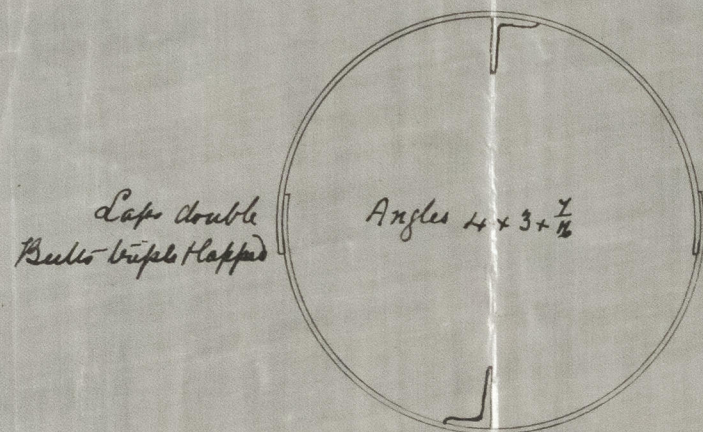 Laps double
Butts triple & lapped
Angles 4 x 3 x 7/16